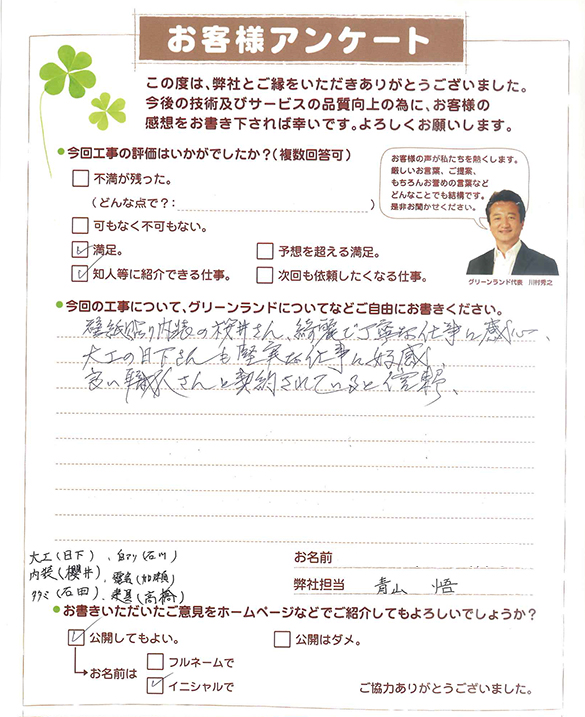 お客様アンケート
この度は、弊社とご縁をいただきありがとうございました。
今後の技術及びサービスの品質向上の為に、お客様の
感想をお書き下されば幸いです。よろしくお願いします。
今回工事の評価はいかがでしたか？（複数回答可）
不満が残った。
（どんな点で？：　）
可もなく不可もない。
満足。
予想を超える満足。
知人等に紹介できる仕事。
次回も依頼したくなる仕事。
お客様の声が私たちを熱くします。
厳しいお言葉、ご提案、
もちろんお誉めの言葉など
どんなことでも結構です。
是非お聞かせください。
グリーンランド代表　川村秀之
今回の工事について、グリーンランドについてなどご自由にお書きください。
壁紙貼り内装の桜井さん、綺麗で丁寧な仕事に感心、
大工の日下さんも堅実な仕事に好感、
良い職人さんと契約されていると信頼、
大工(日下)、白アリ(石川)
内装(櫻井)、電気(加瀬)
タタミ(石田)、建具(高橋)
お名前
弊社担当　青山　悟
お書きいただいたご意見をホームページなどでご紹介してもよろしいでしょうか？
公開してもよい。
公開はダメ。
お名前は
フルネームで
イニシャルで
ご協力ありがとうございました。